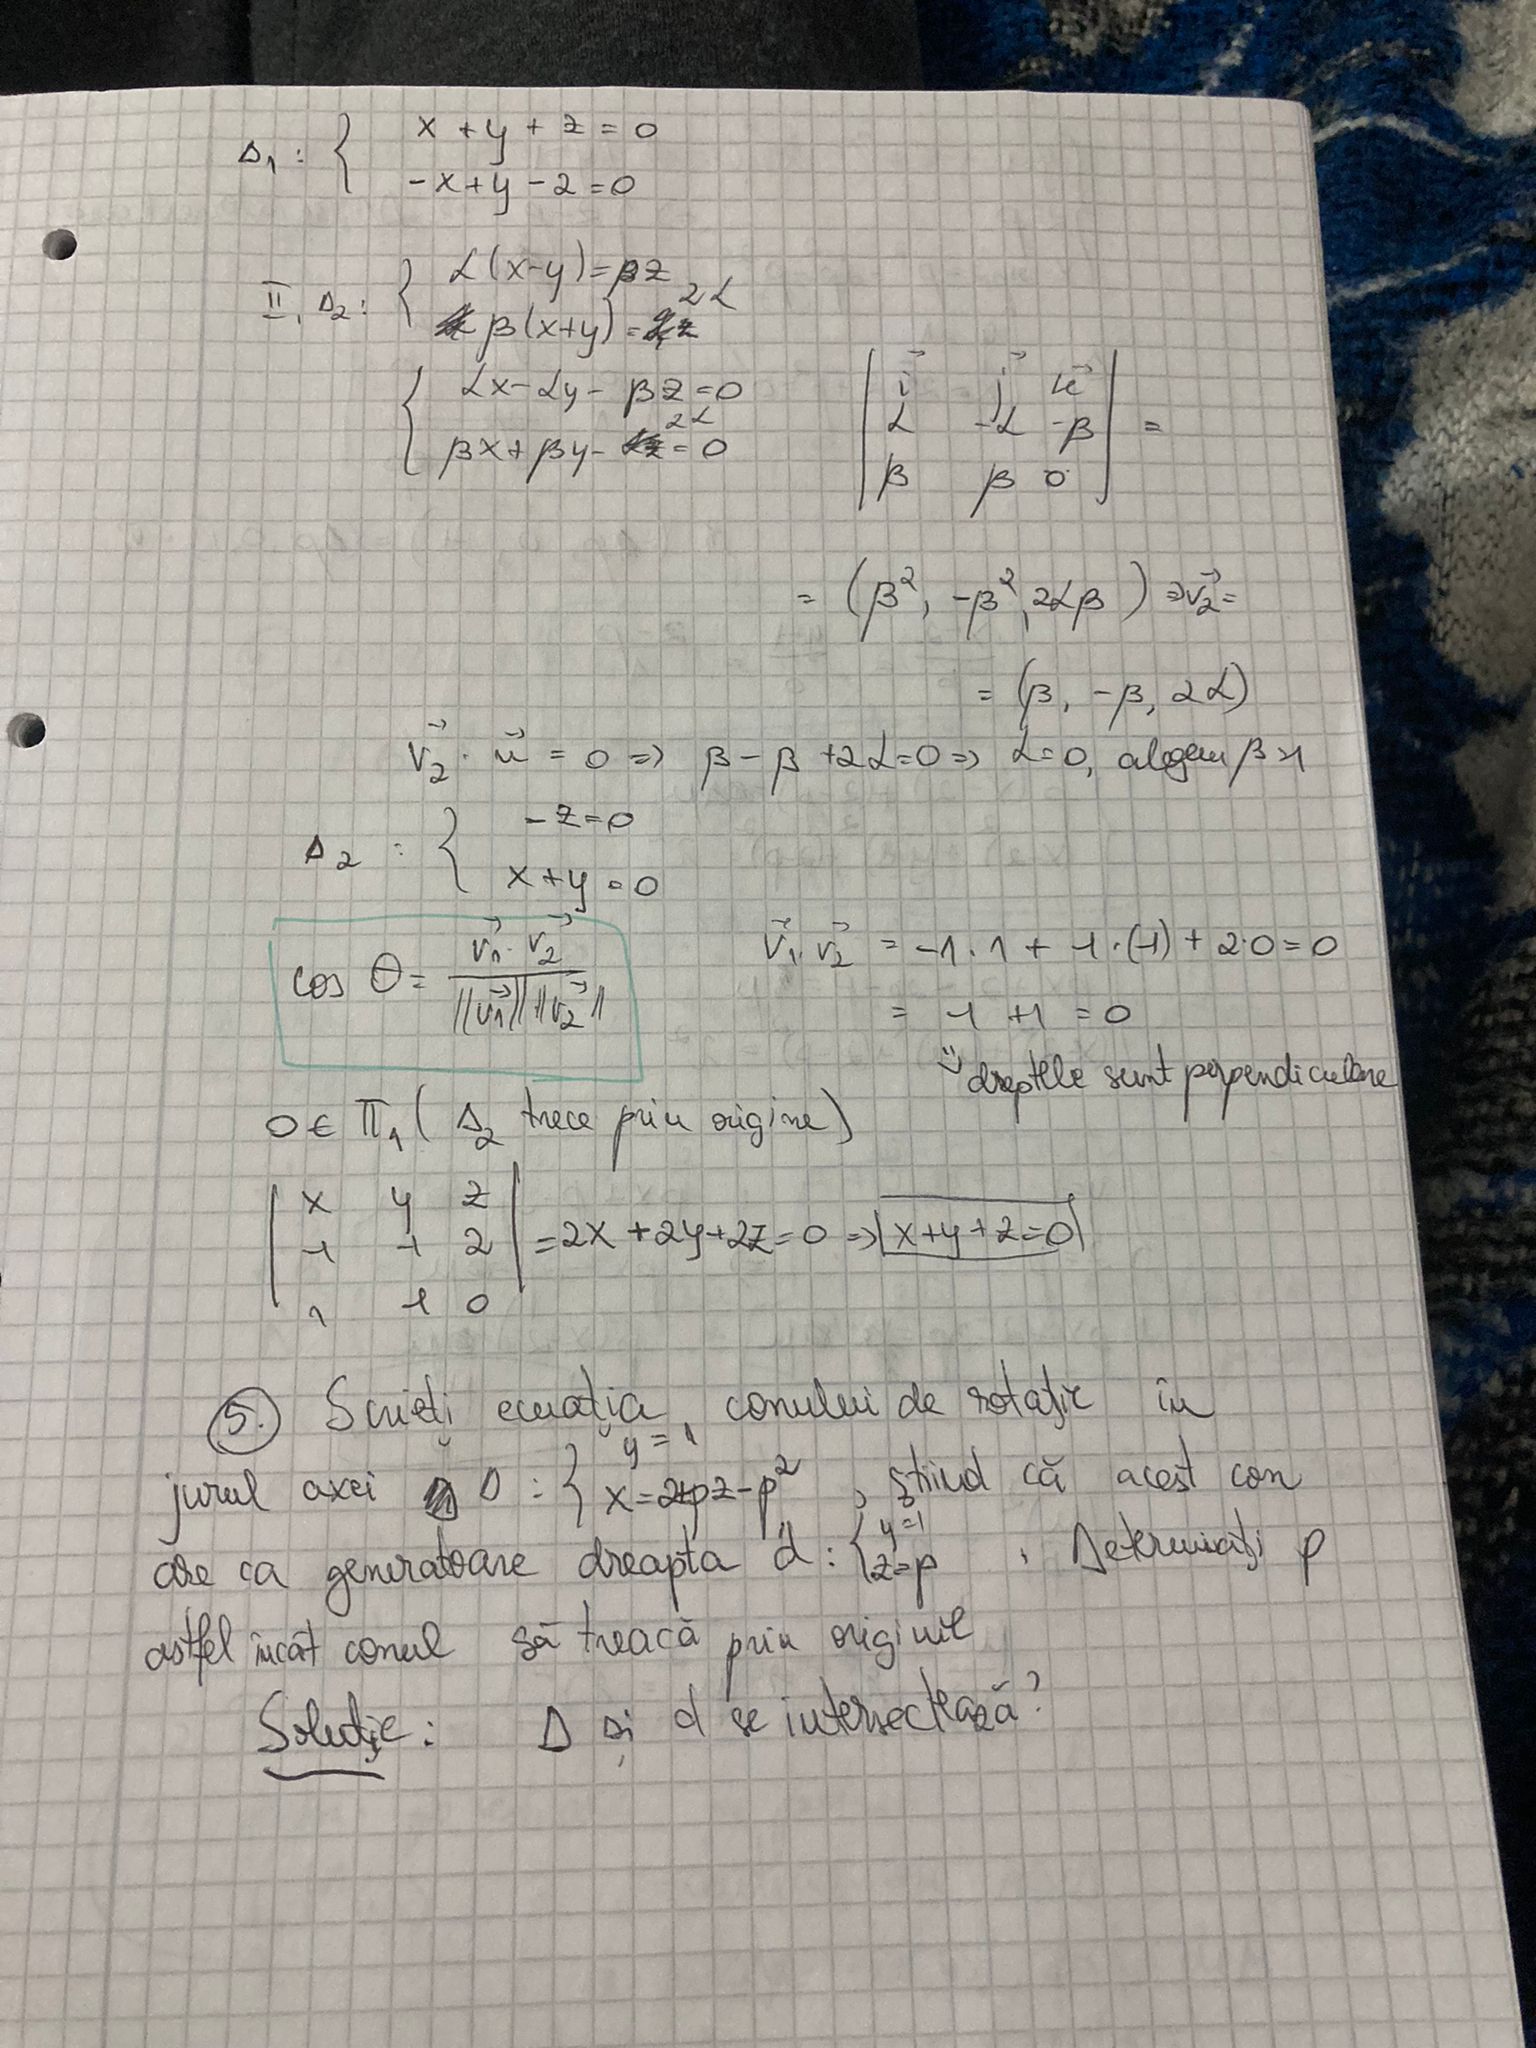 Δ₁ : { x + y + z = 0
-x + y - 2 = 0
II. Δ₂ : { α(x-y) = βz
β(x+y) = 2α
{ αx - αy - βz = 0
βx + βy - 2α = 0
| i⃗ j⃗ k⃗ |
| α -α -β | =
| β β 0 |
= (β², -β², 2αβ) ⇒ v₂⃗ =
= (β, -β, 2α)
v₂⃗ · u⃗ = 0 ⇒ β - β + 2α = 0 ⇒ α = 0, alegem β = 1
Δ₂ : { -z = 0
x + y = 0
cos θ = v₁⃗ · v₂⃗ / ||v₁⃗|| ||v₂⃗||
v₁⃗ · v₂⃗ = -1 · 1 + -1 · (-1) + 2 · 0 = 0
= -1 + 1 = 0
⇒ dreptele sunt perpendiculare
O ∈ Π₁ ( Δ₂ trece prin origine)
| x y z |
| -1 -1 2 | = 2x + 2y + 2z = 0 ⇒ x + y + z = 0
| 1 -1 0 |
5. Scrieți ecuația conului de rotație în
jurul axei Δ : { y = 1
x = 2pz - p² , știind că acest con
are ca generatoare dreapta d : { y = 1
z = p . Determinați p
astfel încât conul să treacă prin origine
Soluție : Δ și d se intersectează?